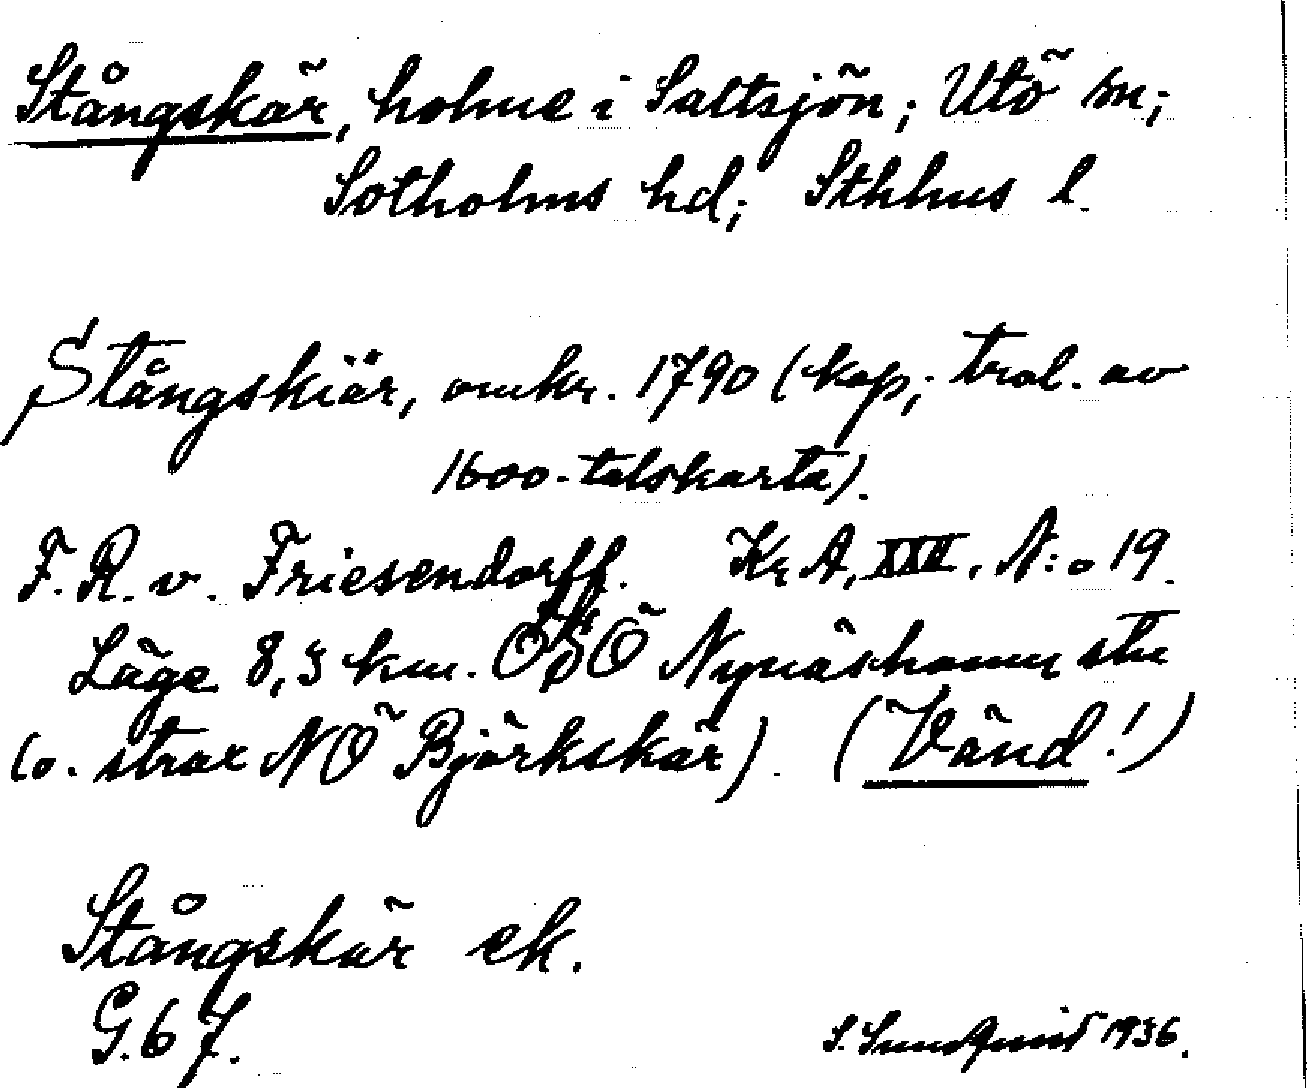 Stångskär, holme i Saltsjön; Utö sn;
Sotholms hd; Sthlms l.
Stångskiär, omkr. 1790 (kop; trol. av
1600-talskarta).
F. R. v. Friesendorff. Kr A, XXV, N:o 19.
Läge 8,3 km. OSO Nynäshamn stn
(o. strax NÖ Björkskär). (Vänd!)
Stångskär ek.
G. 67.
S. Sundquist 1936.